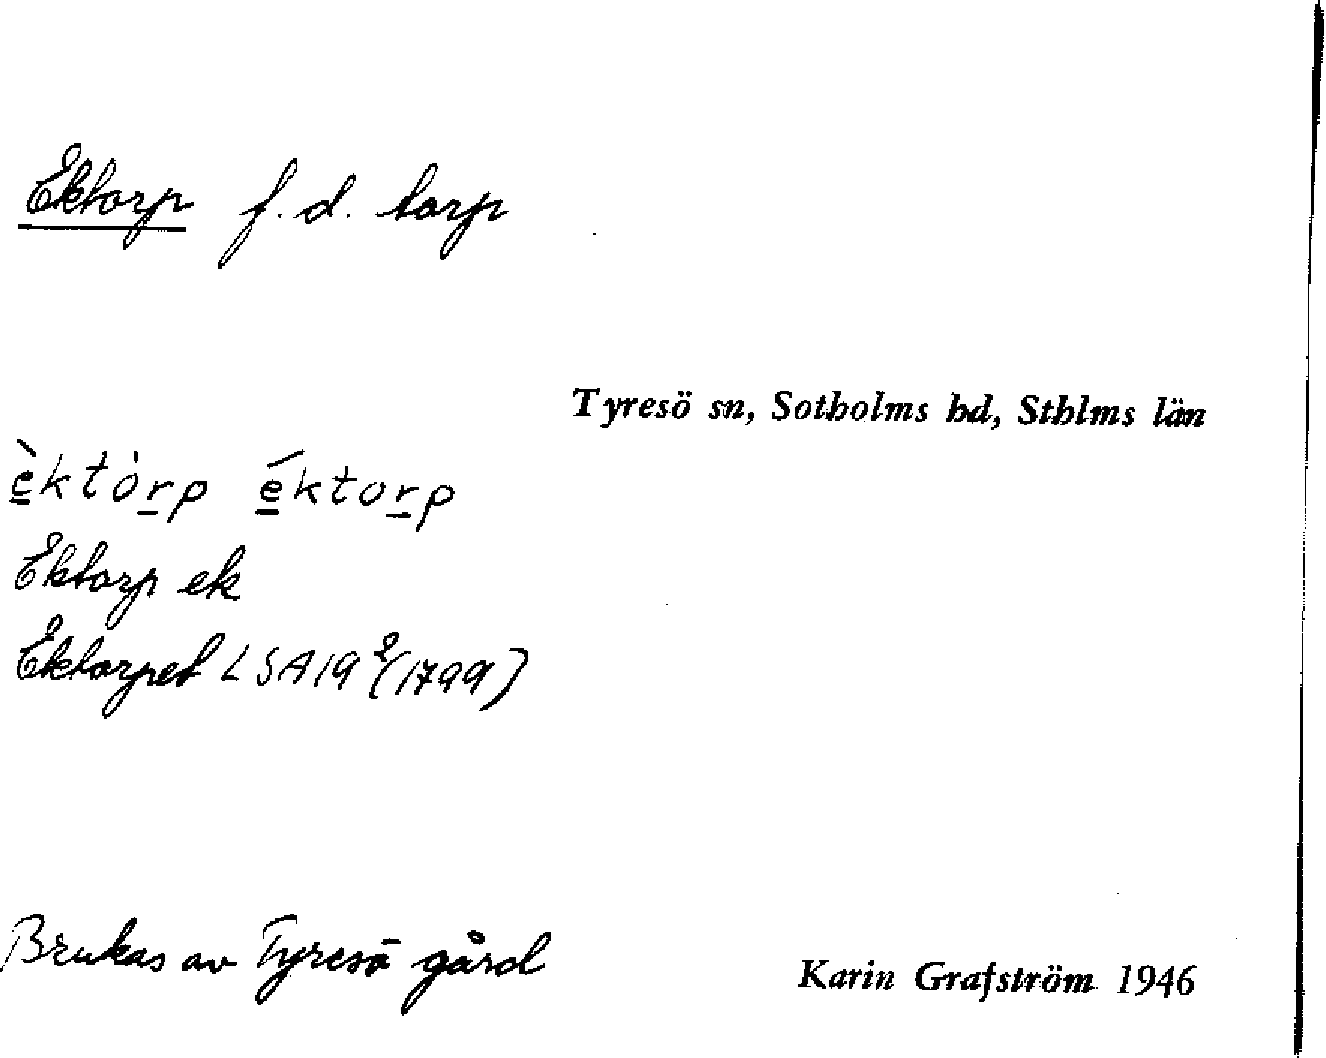 Ektorp f. d. torp
Tyresö sn, Sotholms hd, Sthlms län
è̱ktòṟp é̱ktoṟp
Ektorp ek
Ektorpet LSA19²(1799)
Brukas av Tyresö gård
Karin Grafström 1946